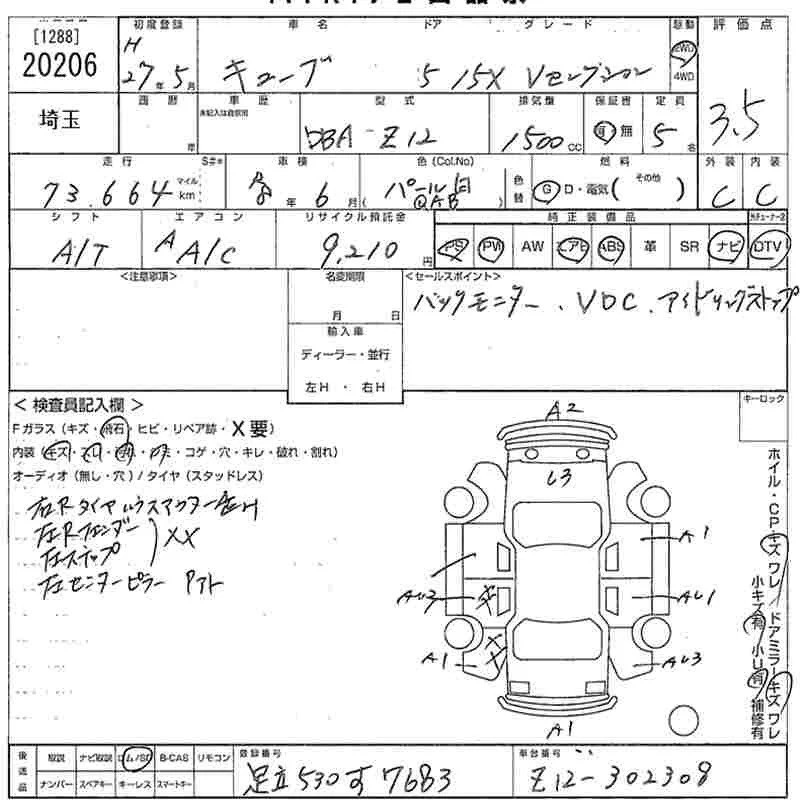 [1288]
20206
埼玉
初度登録 車名 ドア グレード 駆動 評価点
H 27年5月 キューブ 5 15X Vセレクション 2WD 4WD 3.5
西暦 車歴 型式 排気量 保証書 定員
年 未記入は自家用 DBA-Z12 1500cc 有・無 5名
走行 S#* 車検 色(Col.No) 燃料 外装 内装
73.664 マイル km 年 6月 ( パール白 QAB ) 色替 G D・電気( その他 ) C C
シフト エアコン リサイクル預託金 純正装備品
A/T AA/C 9,210円 PS PW AW エアB ABS 革 SR ナビ DTV
<注意事項> 名変期限 <セールスポイント>
月 日 バックモニター、VDC、アイドリングストップ
輸入車
ディーラー・並行
左H・右H
キーロック
<検査員記入欄>
Fガラス(キズ・飛石・ヒビ・リペア跡・X要)
内装(キズ・コゲ・穴・キレ・破れ・割れ)
オーディオ(無し・穴)/タイヤ(スタッドレス)
左Rフェンダー
左ステップ XX
左センターピラー
A2
U3
A1
AU2 AU1
A1 AU3
A1
ホイル・CP・キズ ワレ/ドアミラーキズ ワレ
小キズ有 小U有 補修有
後送品 取説 ナビ取説 ロム/SD B-CAS リモコン 登録番号 車台番号
ナンバー スペアキー キーレス スマートキー 足立530す7683 Z12-302308